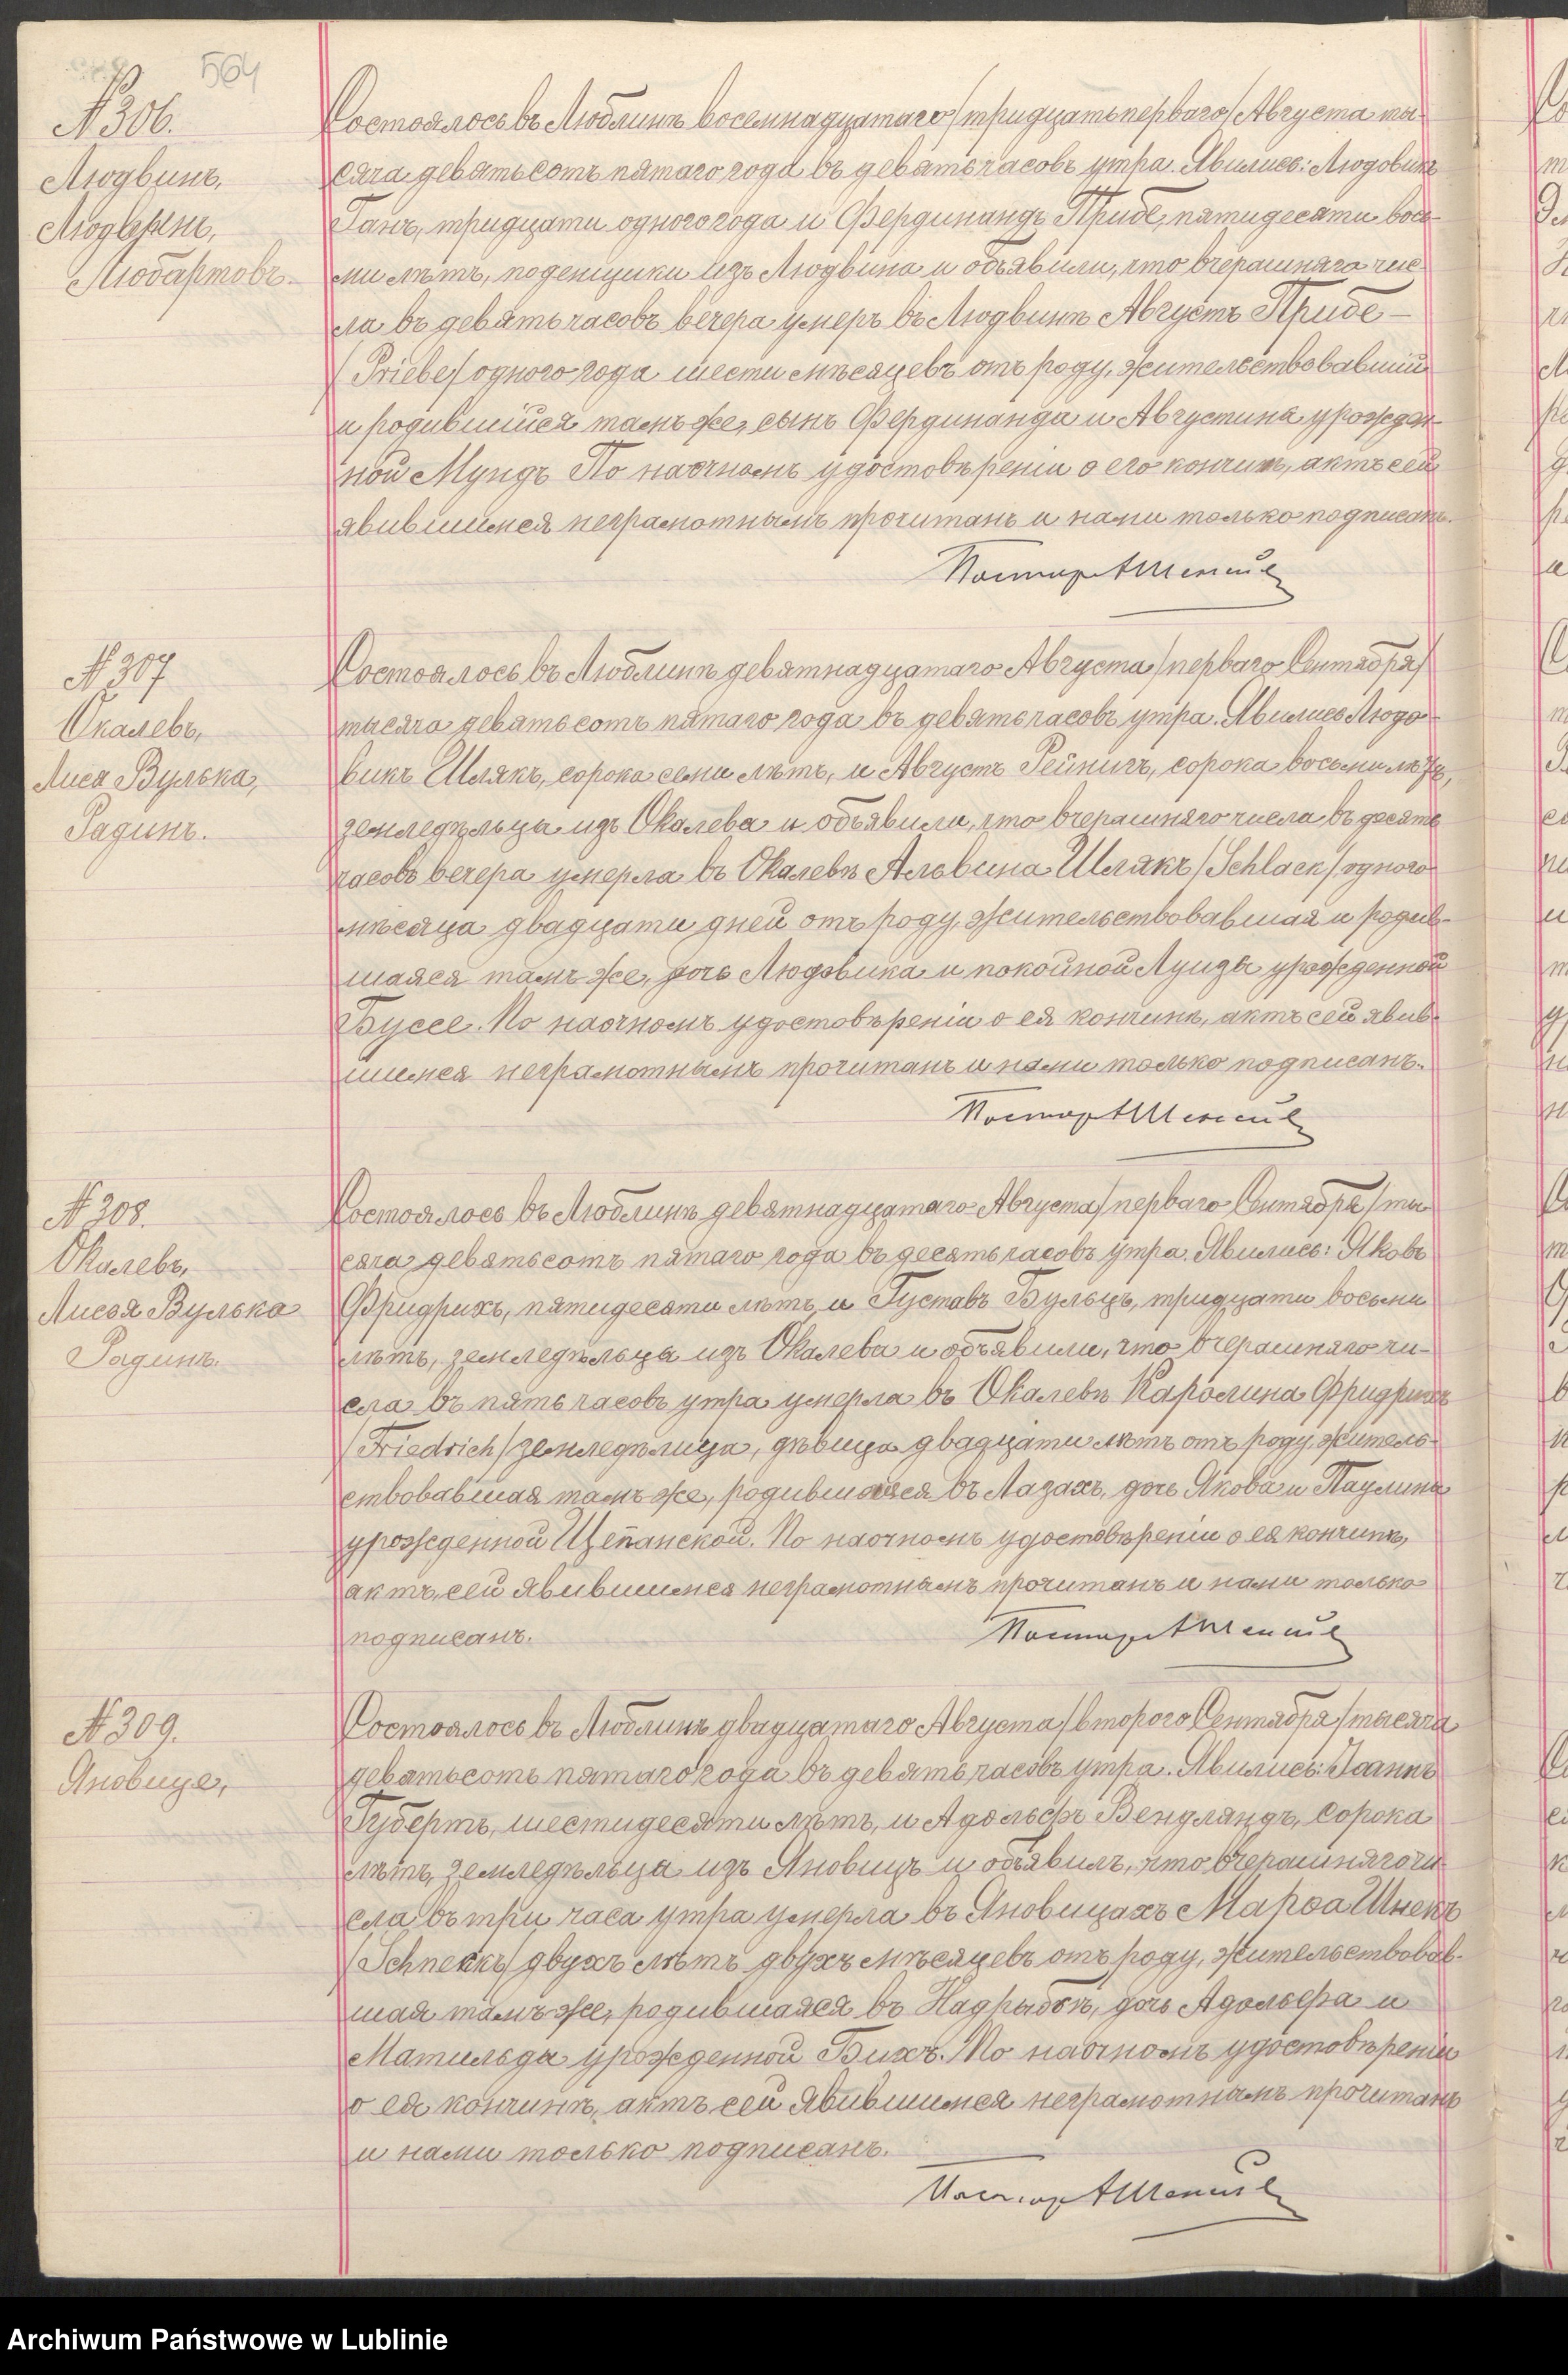 564
№ 306.
Людвинъ,
Людвинъ,
Любартовъ.
Состоялось въ Люблинѣ восемнадцатаго /тридцать перваго/ Августа ты-
сяча девятьсотъ пятаго года въ девять часовъ утра. Явились: Людовикъ
Ганъ, тридцати одного года и Фердинандъ Прибе, пятидесяти вось-
ми лѣтъ, поденщики изъ Людвина и объявили, что вчерашняго чис-
ла въ девять часовъ вечера умеръ въ Людвинѣ Августъ Прибе –
/Priebe/ одного года шести мѣсяцевъ отъ роду, жительствовавшій
и родившійся тамъ же, сынъ Фердинанда и Августины урожден-
ной Мундъ По наочномъ удостовѣреніи о его кончинѣ, актъ сей
явившимся неграмотнымъ прочитанъ и нами только подписанъ.
Пасторъ А
№ 307
Окалевъ,
Лися Вулька,
Радинъ.
Состоялось въ Люблинѣ девятнадцатаго Августа /перваго Сентября/
тысяча девятьсотъ пятаго года въ девять часовъ утра. Явились Людо-
викъ Шлякъ, сорока семи лѣтъ, и Августъ Рейнигъ, сорока восьми лѣтъ,
земледѣльцы изъ Окалева и объявили, что вчерашняго числа въ десять
часовъ вечера умерла въ Окалевѣ Альвина Шлякъ /Schlack/ одного
мѣсяца двадцати дней отъ роду, жительствовавшая и родив-
шаяся тамъ же, дочь Людовика и покойной Луизы урожденной
Буссе. По наочномъ удостовѣреніи о ея кончинѣ, актъ сей явив-
шимся неграмотнымъ прочитанъ и нами только подписанъ.
Пасторъ А
№ 308.
Окалевъ,
Лисья Вулька
Радинъ.
Состоялось въ Люблинѣ девятнадцатаго Августа /перваго Сентября/ ты-
сяча девятьсотъ пятаго года въ десять часовъ утра. Явились: Яковъ
Фридрихъ, пятидесяти лѣтъ, и Густавъ Бульцъ, тридцати восьми
лѣтъ, земледѣльцы изъ Окалева и объявили, что вчерашняго чи-
сла въ пять часовъ утра умерла въ Окалевѣ Каролина Фридрихъ
/Friedrich/ земледѣлица, дѣвица двадцати лѣтъ отъ роду, житель-
ствовавшая тамъ же, родившаяся въ Лазахъ, дочь Якова и Паулины
урожденной Щепанской. По наочномъ удостовѣреніи о ея кончинѣ,
актъ сей явившимся неграмотнымъ прочитанъ и нами только
подписанъ.
Пасторъ А
№ 309.
Яновице,
Состоялось въ Люблинѣ двадцатаго Августа /второго Сентября/ тысяча
девятьсотъ пятаго года въ девять часовъ утра. Явились: Іоаннъ
Губертъ, шестидесяти лѣтъ, и Адольфъ Вендляндъ, сорока
лѣтъ, земледѣльцы изъ Яновицъ и объявилъ, что вчерашняго чи-
сла въ три часа утра умерла въ Яновицахъ Марѳа Шнекъ
/Schneckъ/ двухъ лѣтъ двухъ мѣсяцевъ отъ роду, жительствовав-
шая тамъ же, родившаяся въ Надрыбѣ, дочь Адольфа и
Матильды урожденной Бихъ. По наочномъ удостовѣреніи
о ея кончинѣ, актъ сей явившимся неграмотнымъ прочитанъ
и нами только подписанъ.
Пасторъ А
Archiwum Państwowe w Lublinie